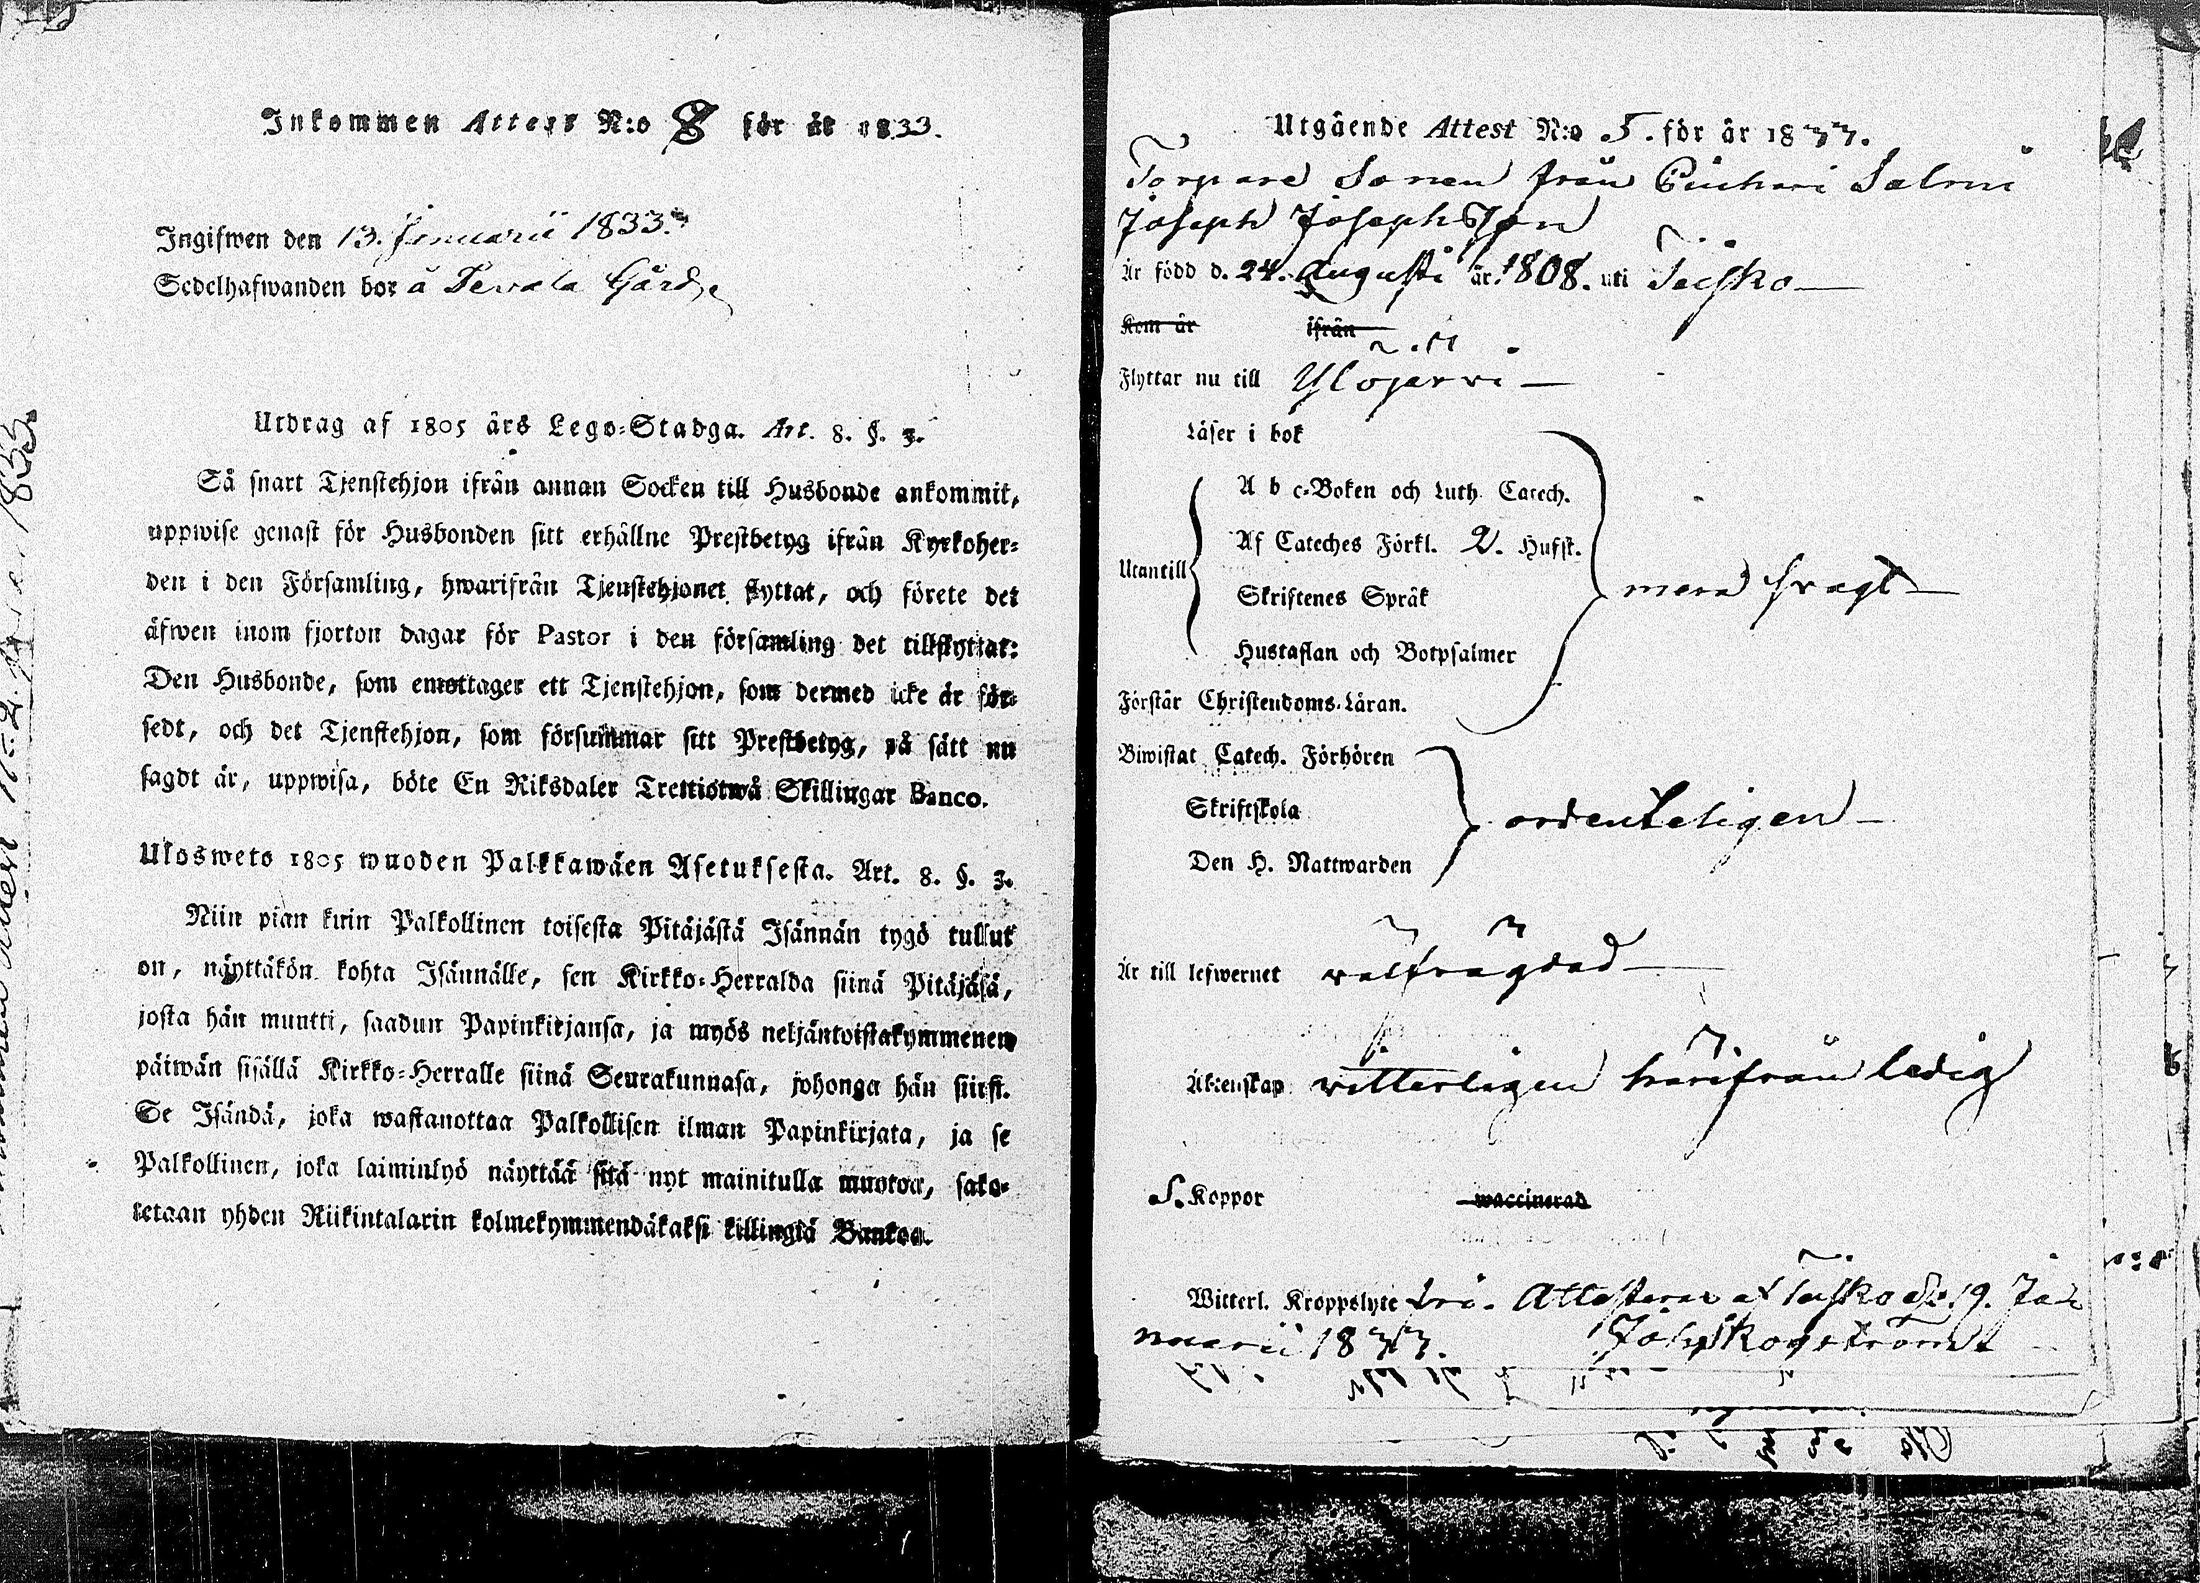 Inkommen Attest N:o 8 för år 1833.
Ingifwen den 13. Januarii 1833.
Sedelhafwanden bor å Gård
Utdrag af 1805 års Lego-Stadga. Art. 8. §. 3.
Så snart Tjenstehjon ifrån annan Socken till Husbonde ankommit,
uppwise genast för Husbonden sitt erhållne Prestbetyg ifrån Kyrkoher-
den i den Församling, hwarifrån Tjenstehjonet flyttat, och förete det
äfwen inom fjorton dagar för Pastor i den församling det tillflyttat:
Den Husbonde, som emottager ett Tjenstehjon, som dermed icke är för-
sedt, och det Tjenstehjon, som försummar sitt Prestbetyg, på sätt nu
sagdt är, uppwisa, böte En Riksdaler Trettiotwå Skillingar Banco.
Ulosweto 1805 wuoden Palkkawäen Asetuksesta. Art. 8. §. 3.
Niin pian kuin Palkollinen toisesta Pitäjästä Isännän tygö tullut
on, näyttäkön kohta Isännälle, sen Kirkko-Herralda siinä Pitäjäsä,
josta hän muutti, saadun Papinkirjansa, ja myös neljäntoistakymmenen
päiwän sisällä Kirkko-Herralle siinä Seurakunnasa, johonga hän siirsi.
Se Isändä, joka wastanottaa Palkollisen ilman Papinkirjata, ja se
Palkollinen, joka laiminlyö näyttää sitä nyt mainitulla muotoa, sako-
tetaan yhden Riikintalarin kolmekymmendäkaksi killingiä Bankoa.
Utgående Attest N:o 5. för år 1833.
Torpare Sonen från Salmi
Joseph Josephsson
Är född d. 24. Augusti år 1808. uti Teisko
Kom är ifrån
Flyttar nu till Ylöjärvi
Läser i bok
A b c-Boken och Luth. Catech.
Af Cateches Förkl. 2. Hufst.
Utantill
Skriftenes Språk
Hustaflan och Botpsalmer
mera svagt
Förstår Christendoms-Läran.
Biwistat Catech. Förhören
Skriftskola
ordenteligen
Den H. Nattwarden
Är till lefwernet välfrägdad
Äktenskap vitterligen härifrån ledig
S. Koppor waccinerad
Witterl. Kroppslyte fri. Attesterar af Teisko d. 19. Ja-
nuarii 1833.